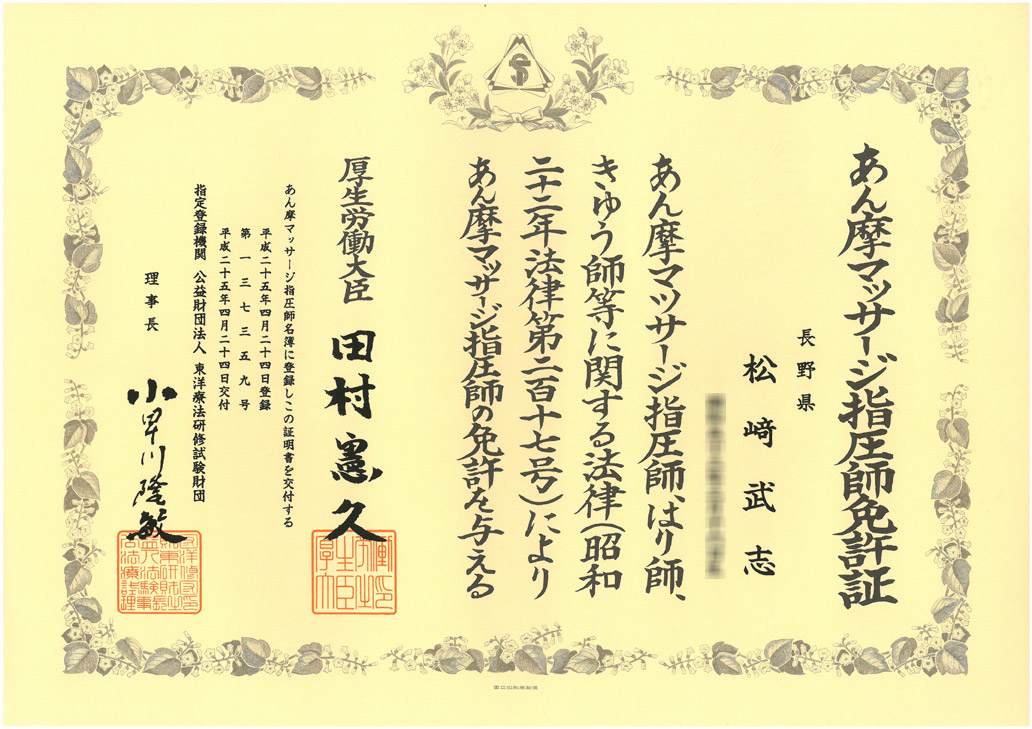 あん摩マッサージ指圧師免許証
長野県
松﨑武志
あん摩マッサージ指圧師、はり師、
きゆう師等に関する法律(昭和
二十二年法律第二百十七号)により
あん摩マッサージ指圧師の免許を与える
厚生労働大臣 田村憲久
あん摩マッサージ指圧師名簿に登録しこの証明書を交付する
平成二十五年四月二十四日登録
第一三七三五九号
平成二十五年四月二十四日交付
指定登録機関 公益財団法人 東洋療法研修試験財団
理事長 小早川隆敏